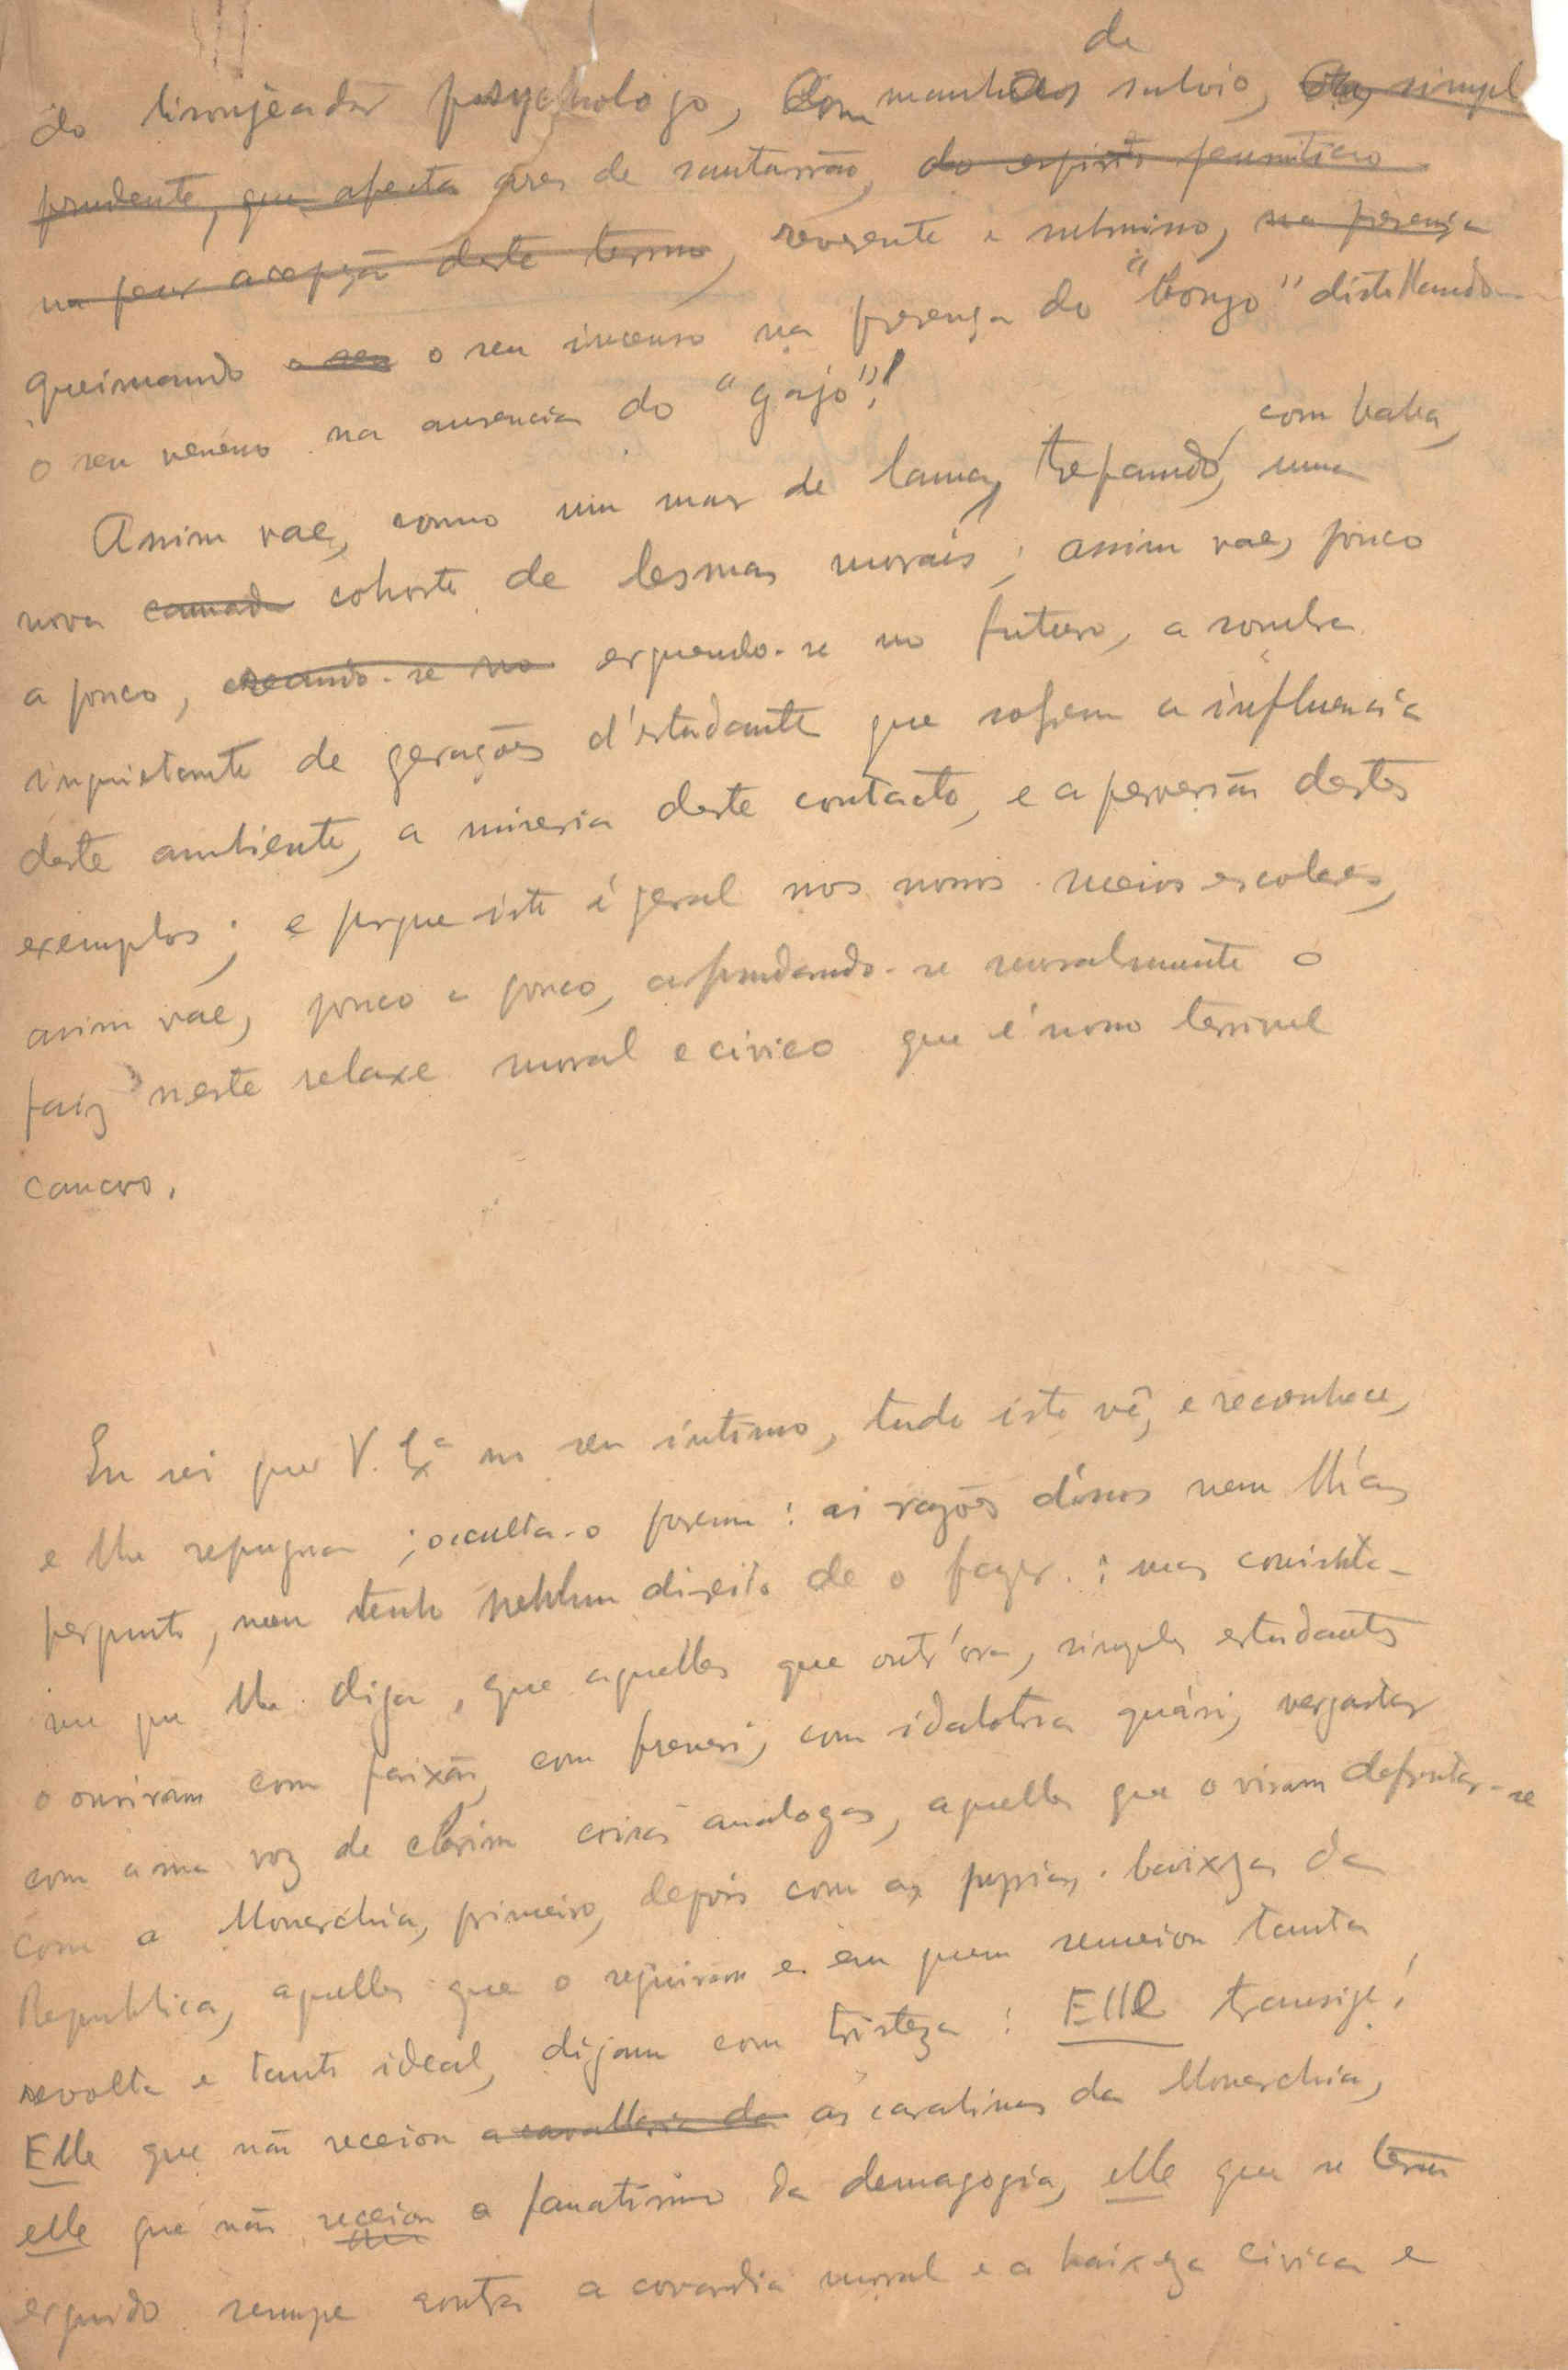 de
do lisonjeador psychologo, com manhas sabio, simpl
prudente, que afecta ares de santarrão, do espirito jesuitico
na peor acepção deste termo, reverente e submisso, na presença
queimando o seu o seu incenso na presença do "bonzo" distillando
o seu veneno na ausencia do "gajo"!
com baba,
Assim vae, como um mar de lama, trepando, uma
nova camada cohorte de lesmas moraes; assim vae, pouco
a pouco, creando-se no erguendo-se no futuro, a sombra
inquietante de gerações d'estudante que sofrem a influencia
deste ambiente, a miseria deste contacto, e a perversão destes
exemplos; e porque isto é geral nos nossos meios escolares,
assim vae, pouco a pouco, afundando-se moralmente o
paiz neste relaxe moral e civico que é nosso terrivel
cancro.
Eu sei que V. Exª no seu intimo, tudo isto vê, e reconhece,
e lhe repugna; occulta-o porem: as razões disso nem lh'as
pergunto, nem tenho nenhum direito de o fazer.: mas consinta-
me que lhe diga, que aquelles que outr'ora, simples estudantes
o ouviram com paixão, com frenesi, com idolatria quási, vergastar
com a sua voz de clarim coisas analogas, aquelles que o viram defrontar-se
com a Monarchia, primeiro, depois com as proprias baixezas da
Republica, aquelles que o seguiram e em quem semeiou tanta
revolta e tanto ideal, digam com tristeza: Elle transige!
Elle que não receiou a cavallaria da as carabinas da Monarchia,
elle que não receiou o fanatismo da demagogia, elle que se tem
erguido sempre contra a covardia moral e a baixeza civica e